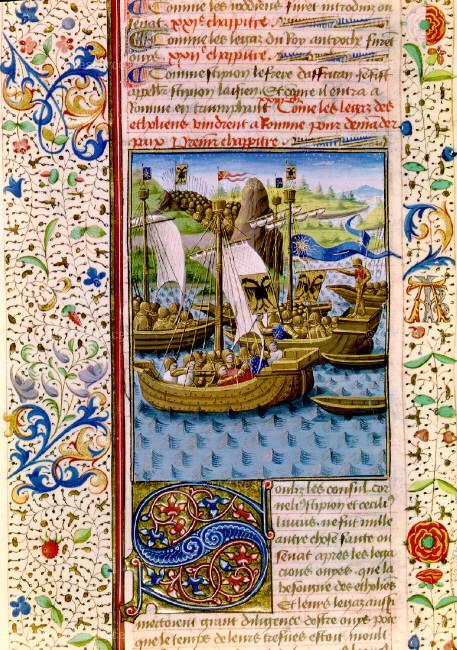 Comme les rodiens furet introduiz ou
senat. xxj.e chapitre.
Comme les legaz du Roy antioche furet
ouys. xxij.e chapitre.
Comme scipion le frere daffrican se fist
appeller scipion lasien, Et come il entra a
Romme en triumphant. Come les legaz des
etholiens vindrent a Romme pour demader
paix. chapitre.
Soubz les consul. cor
neli9 scipion et
lauus. ne fut nulle
autre chose faitte ou
senat apres les lega
cions ouyes. que la
besoinne des etholies
Et leurs legaz aussi
mectoient grant diligence destre ouys pour
que le temps de leurs treuues estoit moult